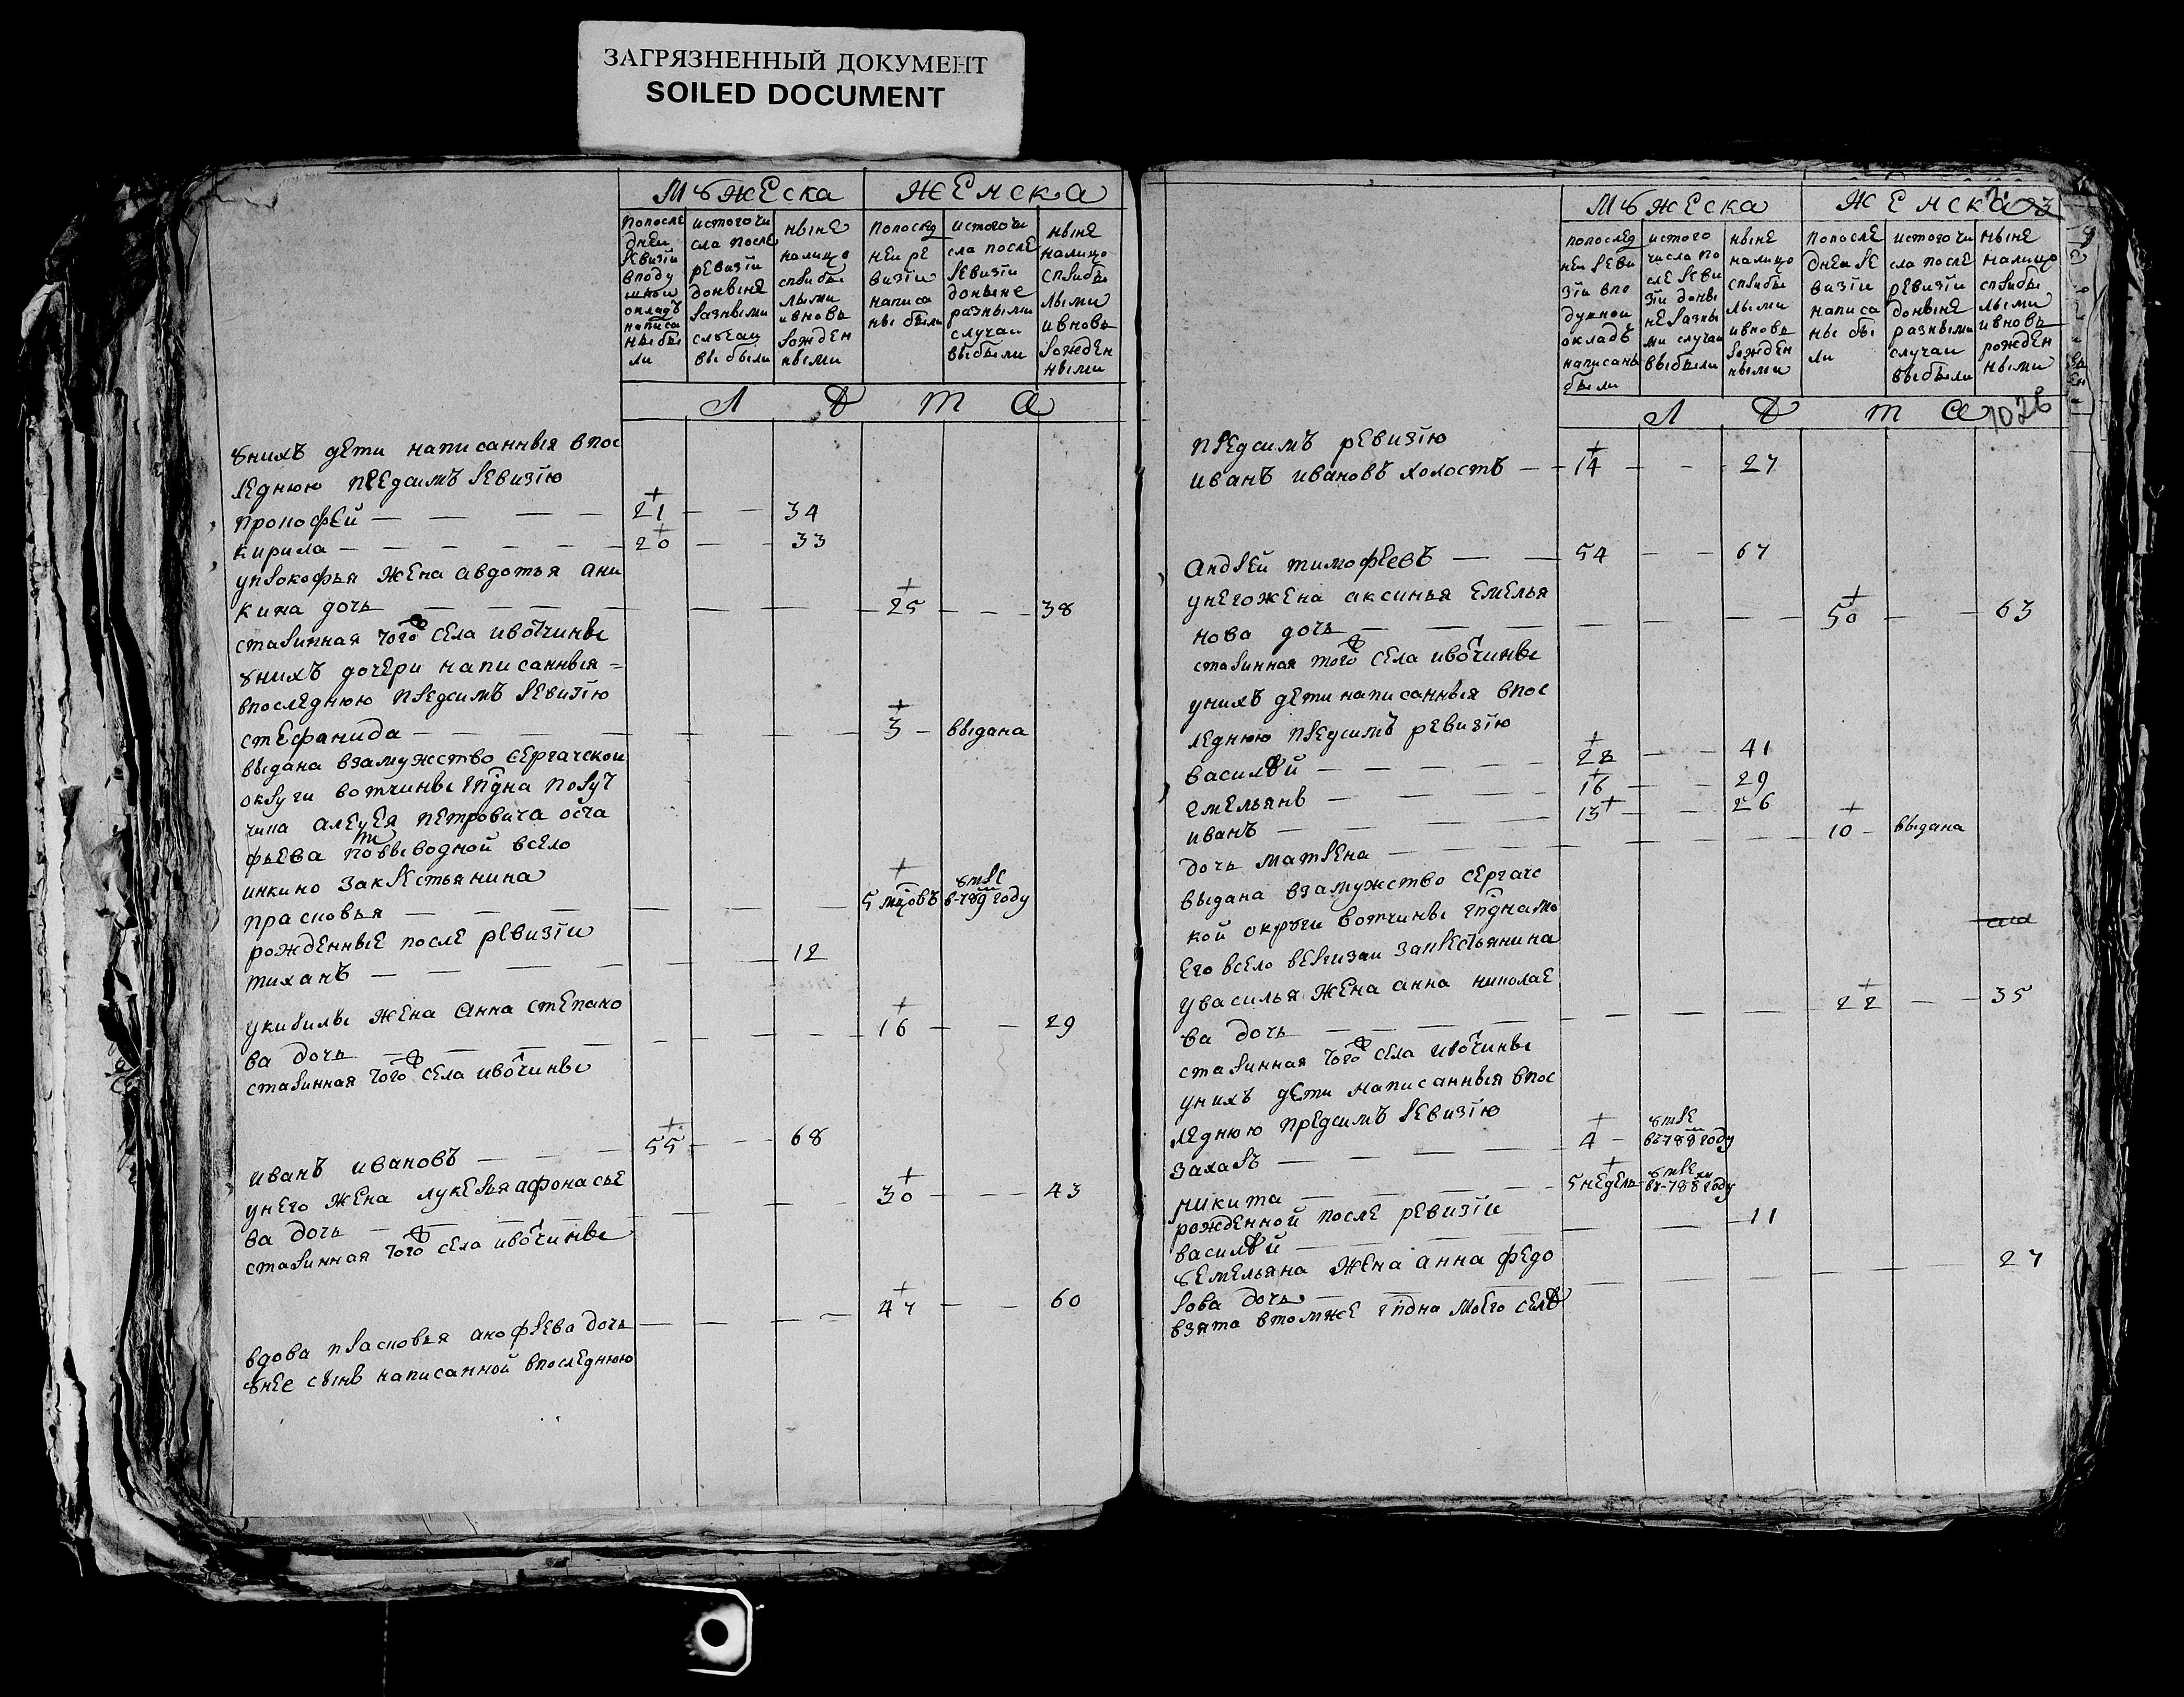 ЗАГРЯЗНЕННЫЙ ДОКУМЕНТ
SOILED DOCUMENT
Мужеска Женска
попосле дней ревизии вподушной окладъ написаны были
истого числа после ревизии доныне разными случаи выбыли
ныне налицо сприбылыми ивновь рожденными
попоследней ревизии написаны были
истого числа после ревизии доныне разными случаи выбыли
ныне налицо сприбылыми ивновь рожденными
Л Ѣ т а
унихъ дети написанныя впос
леднюю предсимъ ревизїю
прокофей 21 34
кирила 20 33
упрокофья жена авдотья ани
кина дочь 25 38
старинная того села ивотчины
унихъ дочери написанныя
впоследнюю предсимъ ревизїю
стефанида 3 выдана
выдана взамужство сергачской
округи вотчины гпдна поруч
чика алеѯея петровича оста
фьева по выводной всело
инкино закрстьянина
прасковья 5 мцовъ умре в-789 году
рожденные после ревизїи
тиханъ 12
укирилы жена анна степано
ва дочь 16 29
старинная того села ивотчины
иванъ ивановъ 55 68
унего жена лукерья афонасье
ва дочь 30 43
старинная того села ивотчины
вдова прасковья анофрева дочь 47 60
унее сынъ написанной впоследнюю
Мужеска Женска
попоследней ревизїи вподушной окладъ написаны были
истого числа после ревизїи доныне разными случаи выбыли
ныне налицо сприбылыми ивновь рожденными
попоследней ревизїи написаны были
истого числа после ревизїи доныне разными случаи выбыли
ныне налицо сприбылыми ивновь рожденными
Л Ѣ т а
1026
предсимъ ревизїю
иванъ ивановъ холостъ 14 27
андрей тимофеевъ 54 67
унегожена аксинья емелья
нова дочь 50 63
старинная того села ивотчины
унихъ дети написанныя впос
леднюю предсимъ ревизїю
василѣй 28 41
емельянъ 16 29
иванъ 13 26
дочь матрена 10 выдана
выдана взамужство сергачс
кой округи вотчины гпдна мо
его всело закрестьянина
увасилья жена анна николае
ва дочь 22 35
старинная того села ивотчины
унихъ дети написанныя впос
леднюю предсимъ ревизїю
захаръ 4 умре въ-788 году
никита 5 недель умре въ-788 году
рожденной после ревизїи
василѣй 11
уемельяна жена анна федо
рова дочь 27
взята втомже гпдна моего селѣ